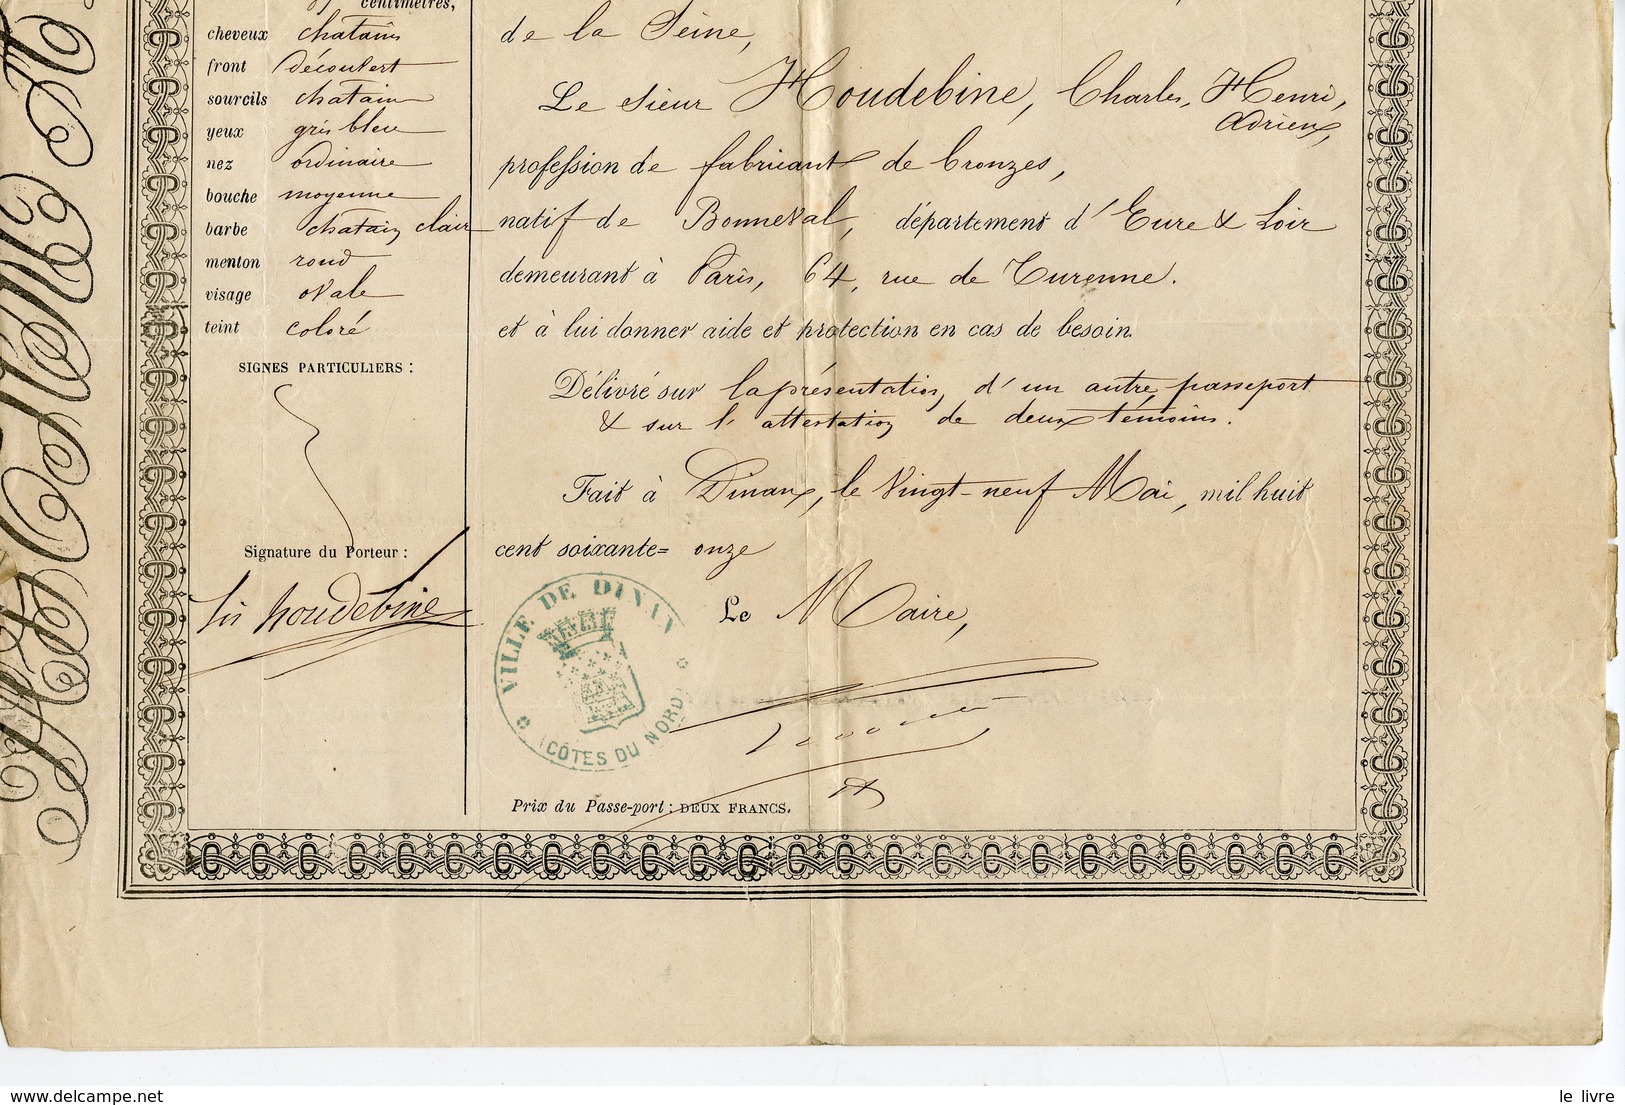 centimètres,
cheveux chatains
front découvert
sourcils chatains
yeux gris bleu
nez ordinaire
bouche moyenne
barbe chatain clair
menton rond
visage ovale
teint coloré
SIGNES PARTICULIERS :
Signature du Porteur :
houdebine
de la Seine,
Le sieur Houdebine, Charles, Henri,
Adrien,
profession de fabricant de bronzes,
natif de Bonneval, département d'Eure & Loir
demeurant à Paris, 64, rue de Turenne.
et à lui donner aide et protection en cas de besoin.
Délivré sur la présentation d'un autre passeport
& sur l'attestation de deux témoins.
Fait à Dinan, le vingt-neuf Mai, mil huit
cent soixante= onze
Le Maire,
VILLE DE DINAN
(CÔTES DU NORD)
Prix du Passe-port : DEUX FRANCS.
le livre